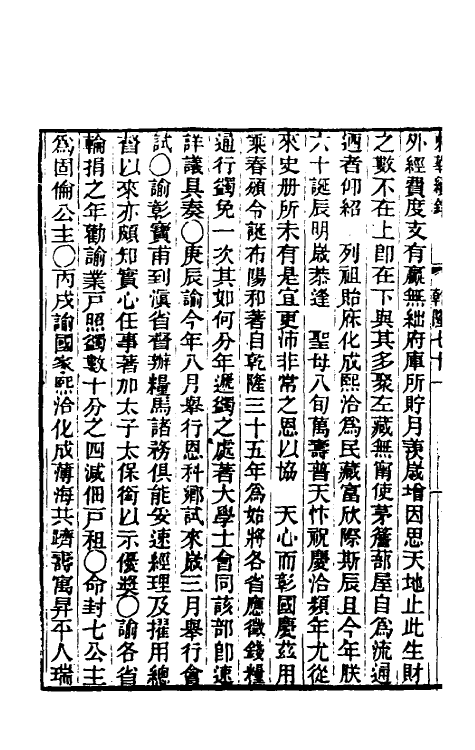 外經費度支有贏無絀府庫所貯月羨歲增因思天地止此生財
之數不在上即在下與其多聚左藏無甯使茅簷蔀屋自爲流通
迺者仰紹　列祖貽庥化成熙洽爲民藏富欣際斯辰且今年朕
六十誕辰明歲恭逢　聖母八旬萬壽普天忭祝慶洽頻年尤從
來史册所未有是宜更沛非常之恩以協　天心而彰國慶茲用
乘春頒令誕布陽和著自乾隆三十五年爲始將各省應徵錢糧
通行蠲免一次其如何分年遞蠲之處著大學士會同該部即速
詳議具奏○庚辰諭今年八月舉行恩科鄉試來歲三月舉行會
試○諭彰寶甫到滇省督辦糧馬諸務俱能妥速經理及擢用總
督以來亦頗知實心任事著加太子太保銜以示優獎○諭各省
輪捐之年勸諭業戶照蠲數十分之四減佃戶租○命封七公主
爲固倫公主○丙戌諭國家熙洽化成薄海共躋壽寓昇平人瑞